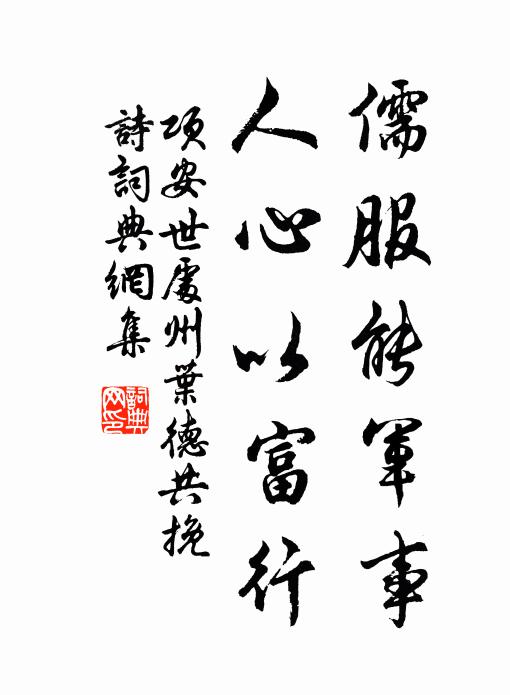 儒服能軍事
人心以富行
項安世處州葉德共挽
詩詞典網集
詞典網印